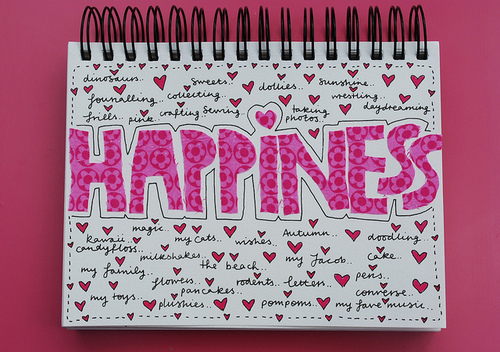 dinosaurs.. sweets.. dollies.. sunshine..
journalling.. collecting.. wrestling..
frills.. pink.. crafting.. sewing taking photos.. daydreaming
HAPPINESS
kawaii.. magic.. my cats.. wishes.. Autumn.. doodling..
candyfloss.. milkshakes.. the beach.. my Jacob.. cake..
my family.. flovers.. rodents.. letters.. pens..
my toys.. plushies.. pancakes.. pompoms.. converse..
my fave music...